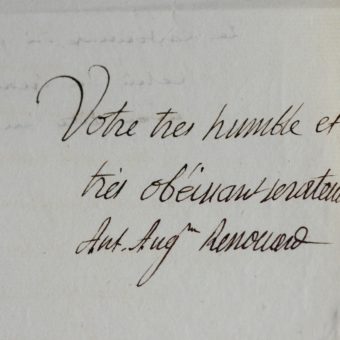 Votre tres humble et
très obéissant serviteu
Ant. Augin Renouard